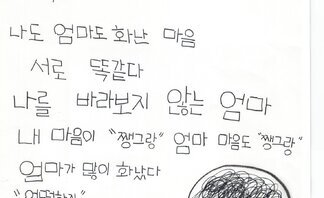 나도 엄마도 화난 마음
서로 똑같다
나를 바라보지 않는 엄마
내 마음이 "쨍그랑" 엄마 마음도 "쨍그랑"
엄마가 많이 화났다
"어떡하지"